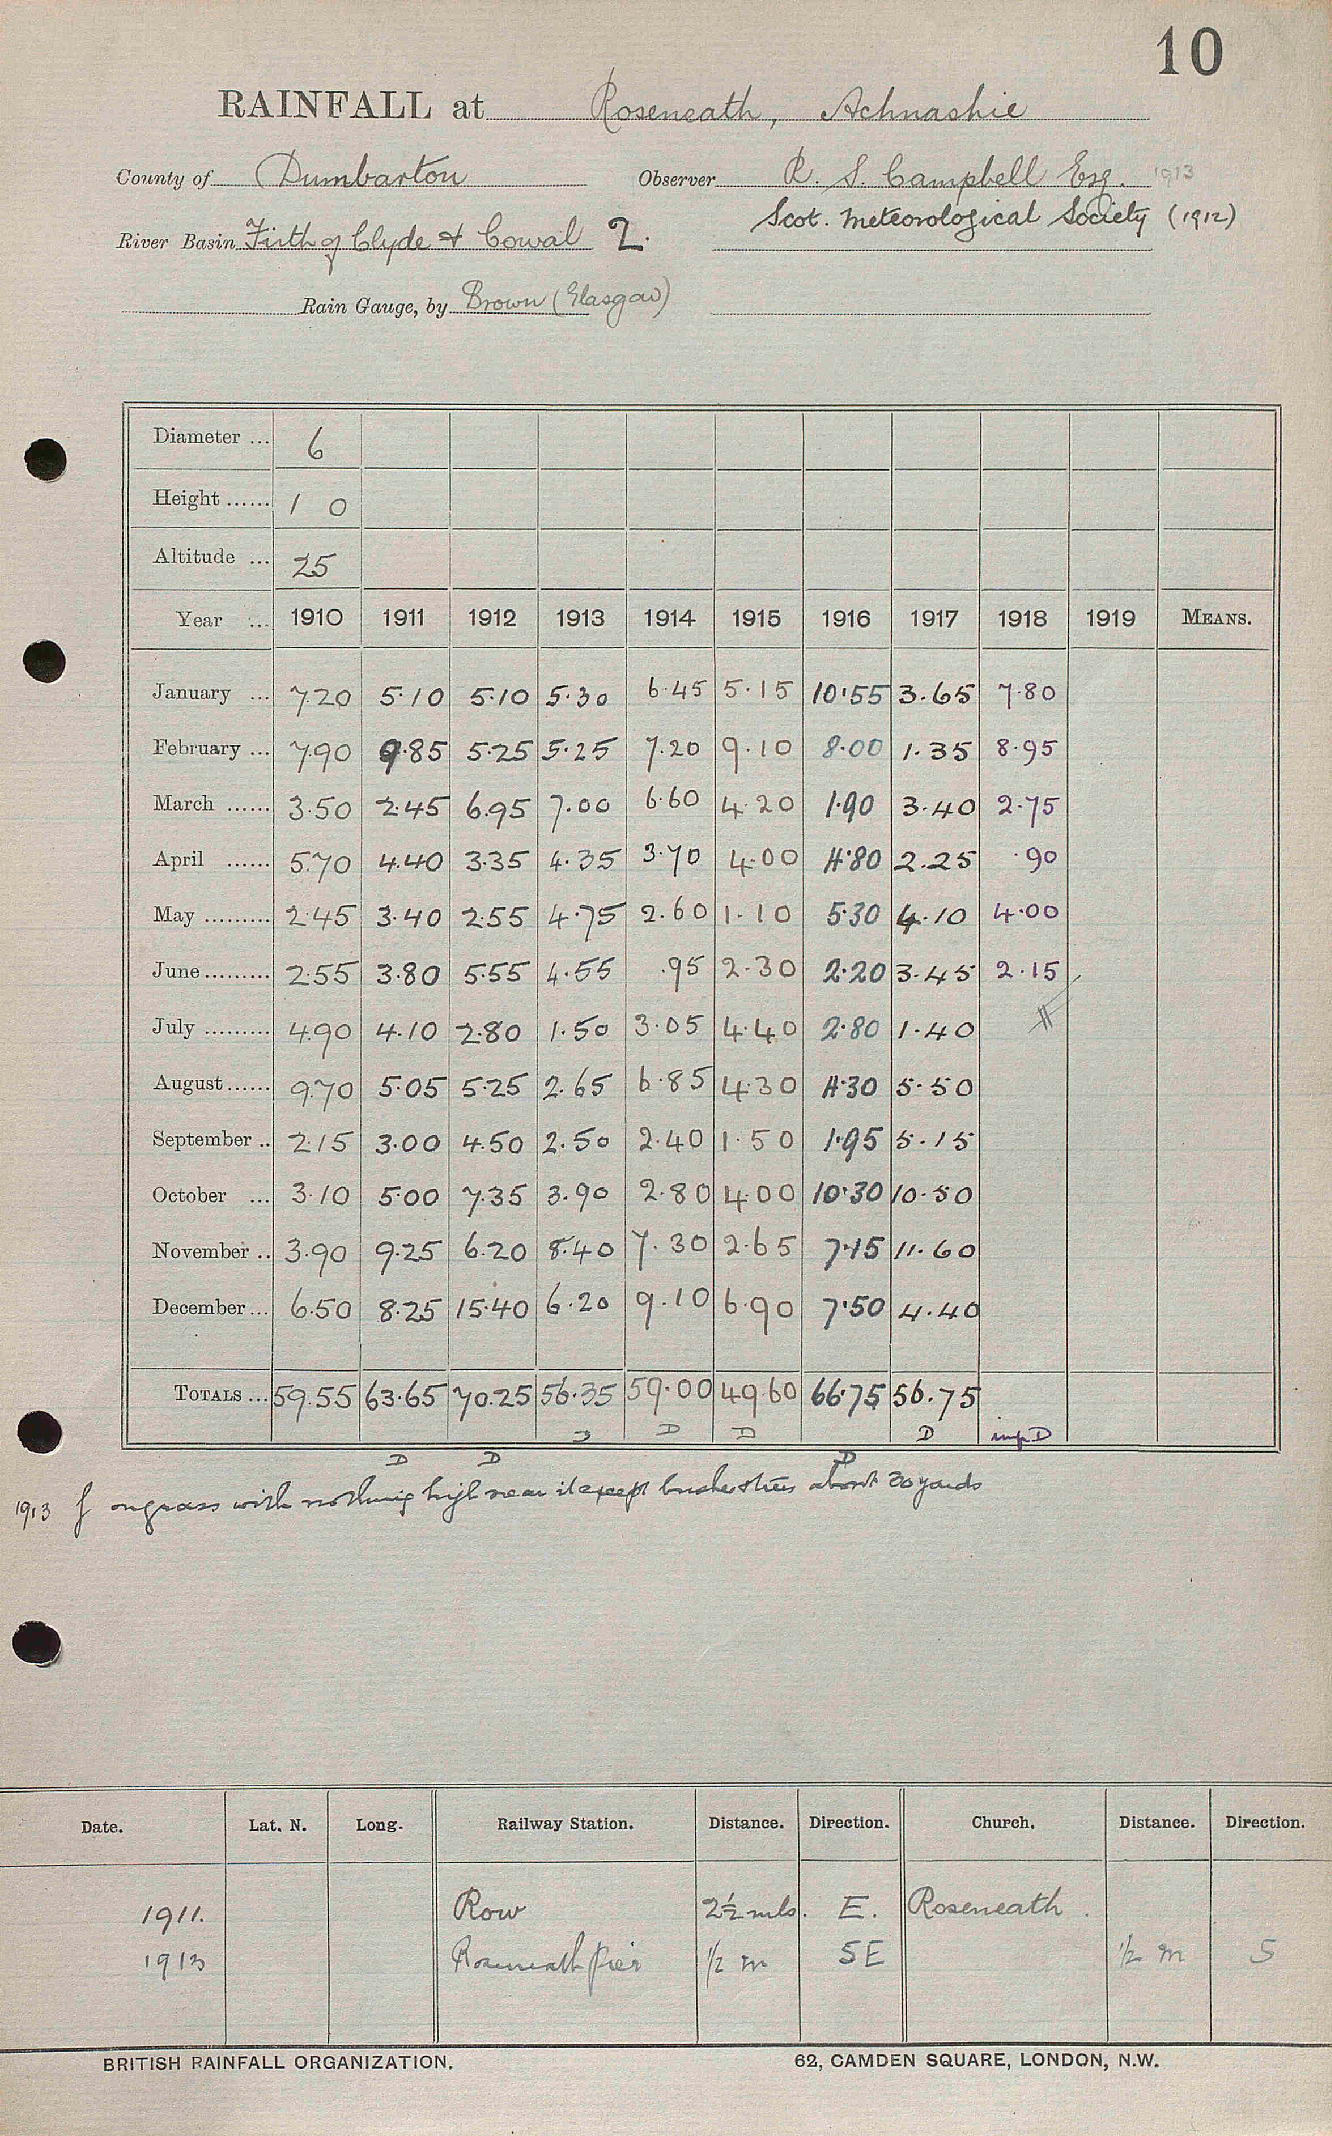 10
RAINFALL at Roseneath, Achnashie
County of Dumbarton Observer R. S. Campbell Esq. 1913
Scot. Meteorological Society (1912)
River Basin Firth of Clyde & Cowal 2.
Rain Gauge, by Brown (Glasgow)
Diameter ... 6
Height ...... 1 0
Altitude ... 25
Year ... 1910 1911 1912 1913 1914 1915 1916 1917 1918 1919 MEANS.
January ... 7.20 5.10 5.10 5.30 6.45 5.15 10.55 3.65 7.80
February ... 7.90 9.85 5.25 5.25 7.20 9.10 8.00 1.35 8.95
March ...... 3.50 2.45 6.95 7.00 6.60 4.20 1.90 3.40 2.75
April ...... 5.70 4.40 3.35 4.35 3.70 4.00 4.80 2.25 .90
May ......... 2.45 3.40 2.55 4.75 2.60 1.10 5.30 4.10 4.00
June ......... 2.55 3.80 5.55 4.55 .95 2.30 2.20 3.45 2.15
July ......... 4.90 4.10 2.80 1.50 3.05 4.40 2.80 1.40
August ...... 9.70 5.05 5.25 2.65 6.85 4.30 4.30 5.50
September .. 2.15 3.00 4.50 2.50 2.40 1.50 1.95 5.15
October ... 3.10 5.00 7.35 3.90 2.80 4.00 10.30 10.50
November .. 3.90 9.25 6.20 8.40 7.30 2.65 7.15 11.60
December ... 6.50 8.25 15.40 6.20 9.10 6.90 7.50 4.40
TOTALS ... 59.55 63.65 70.25 56.35 59.00 49.60 66.75 56.75
D D D D imp. D
D D D
1913 on grass with nothing high near it except bushes & trees about 30 yards
Date. Lat. N. Long. Railway Station. Distance. Direction. Church. Distance. Direction.
1911. Row 2½ mls. E. Roseneath.
1913 Roseneath Pier ½ m SE ½ m S
BRITISH RAINFALL ORGANIZATION. 62, CAMDEN SQUARE, LONDON, N.W.